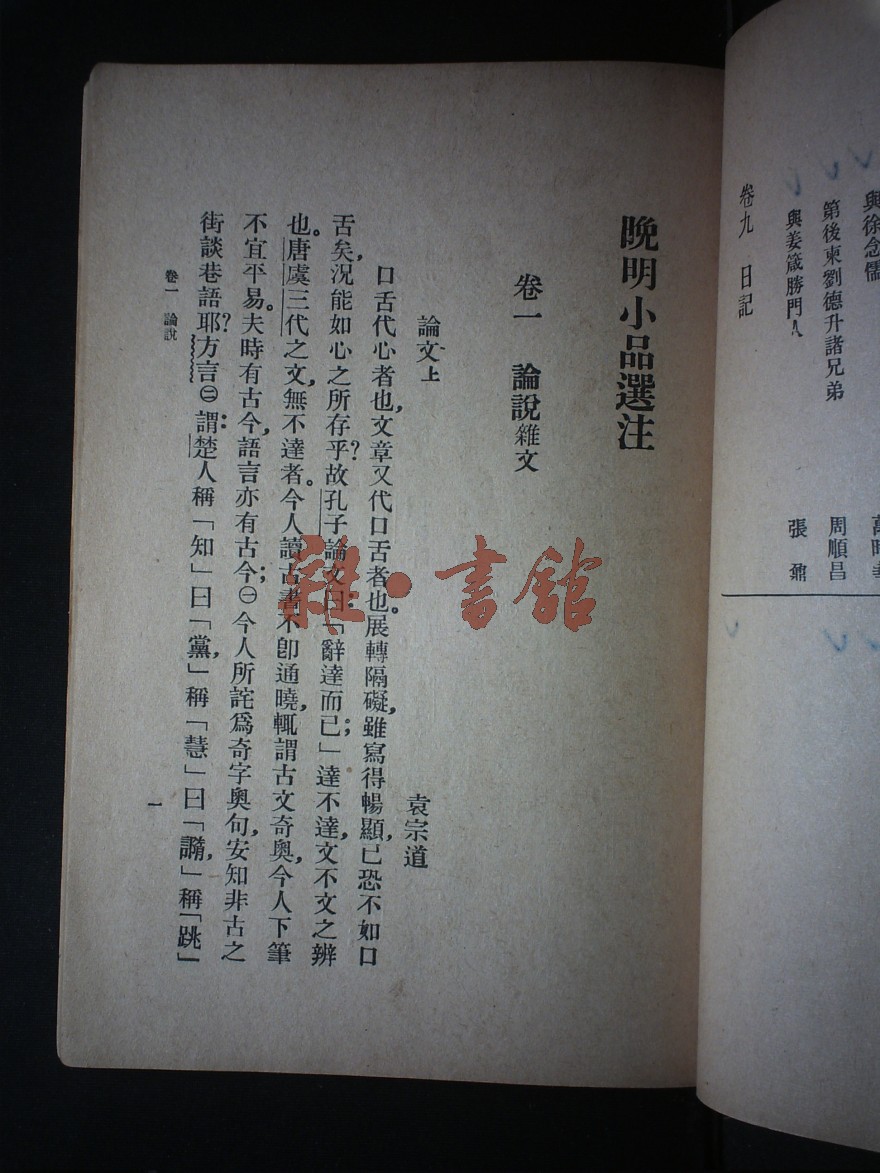 第後柬劉德升諸兄弟 周順昌
與姜箴勝門人 張鼐
卷九 日記
晚明小品選注
卷一 論說雜文
論文上
袁宗道
口舌代心者也,文章又代口舌者也。展轉隔礙,雖寫得暢顯,已恐不如口
舌矣,況能如心之所存乎?故孔子論文曰:「辭達而已;」達不達,文不文之辨
也。唐虞三代之文,無不達者。今人讀古書,不卽通曉,輒謂古文奇奧,今人下筆
不宜平易。夫時有古今,語言亦有古今;㊀今人所詫爲奇字奧句,安知非古之
街談巷語耶?方言㊁謂:楚人稱「知」曰「黨,」稱「慧」曰「䜏,」稱「跳」
卷一 論說
一
雜·書館